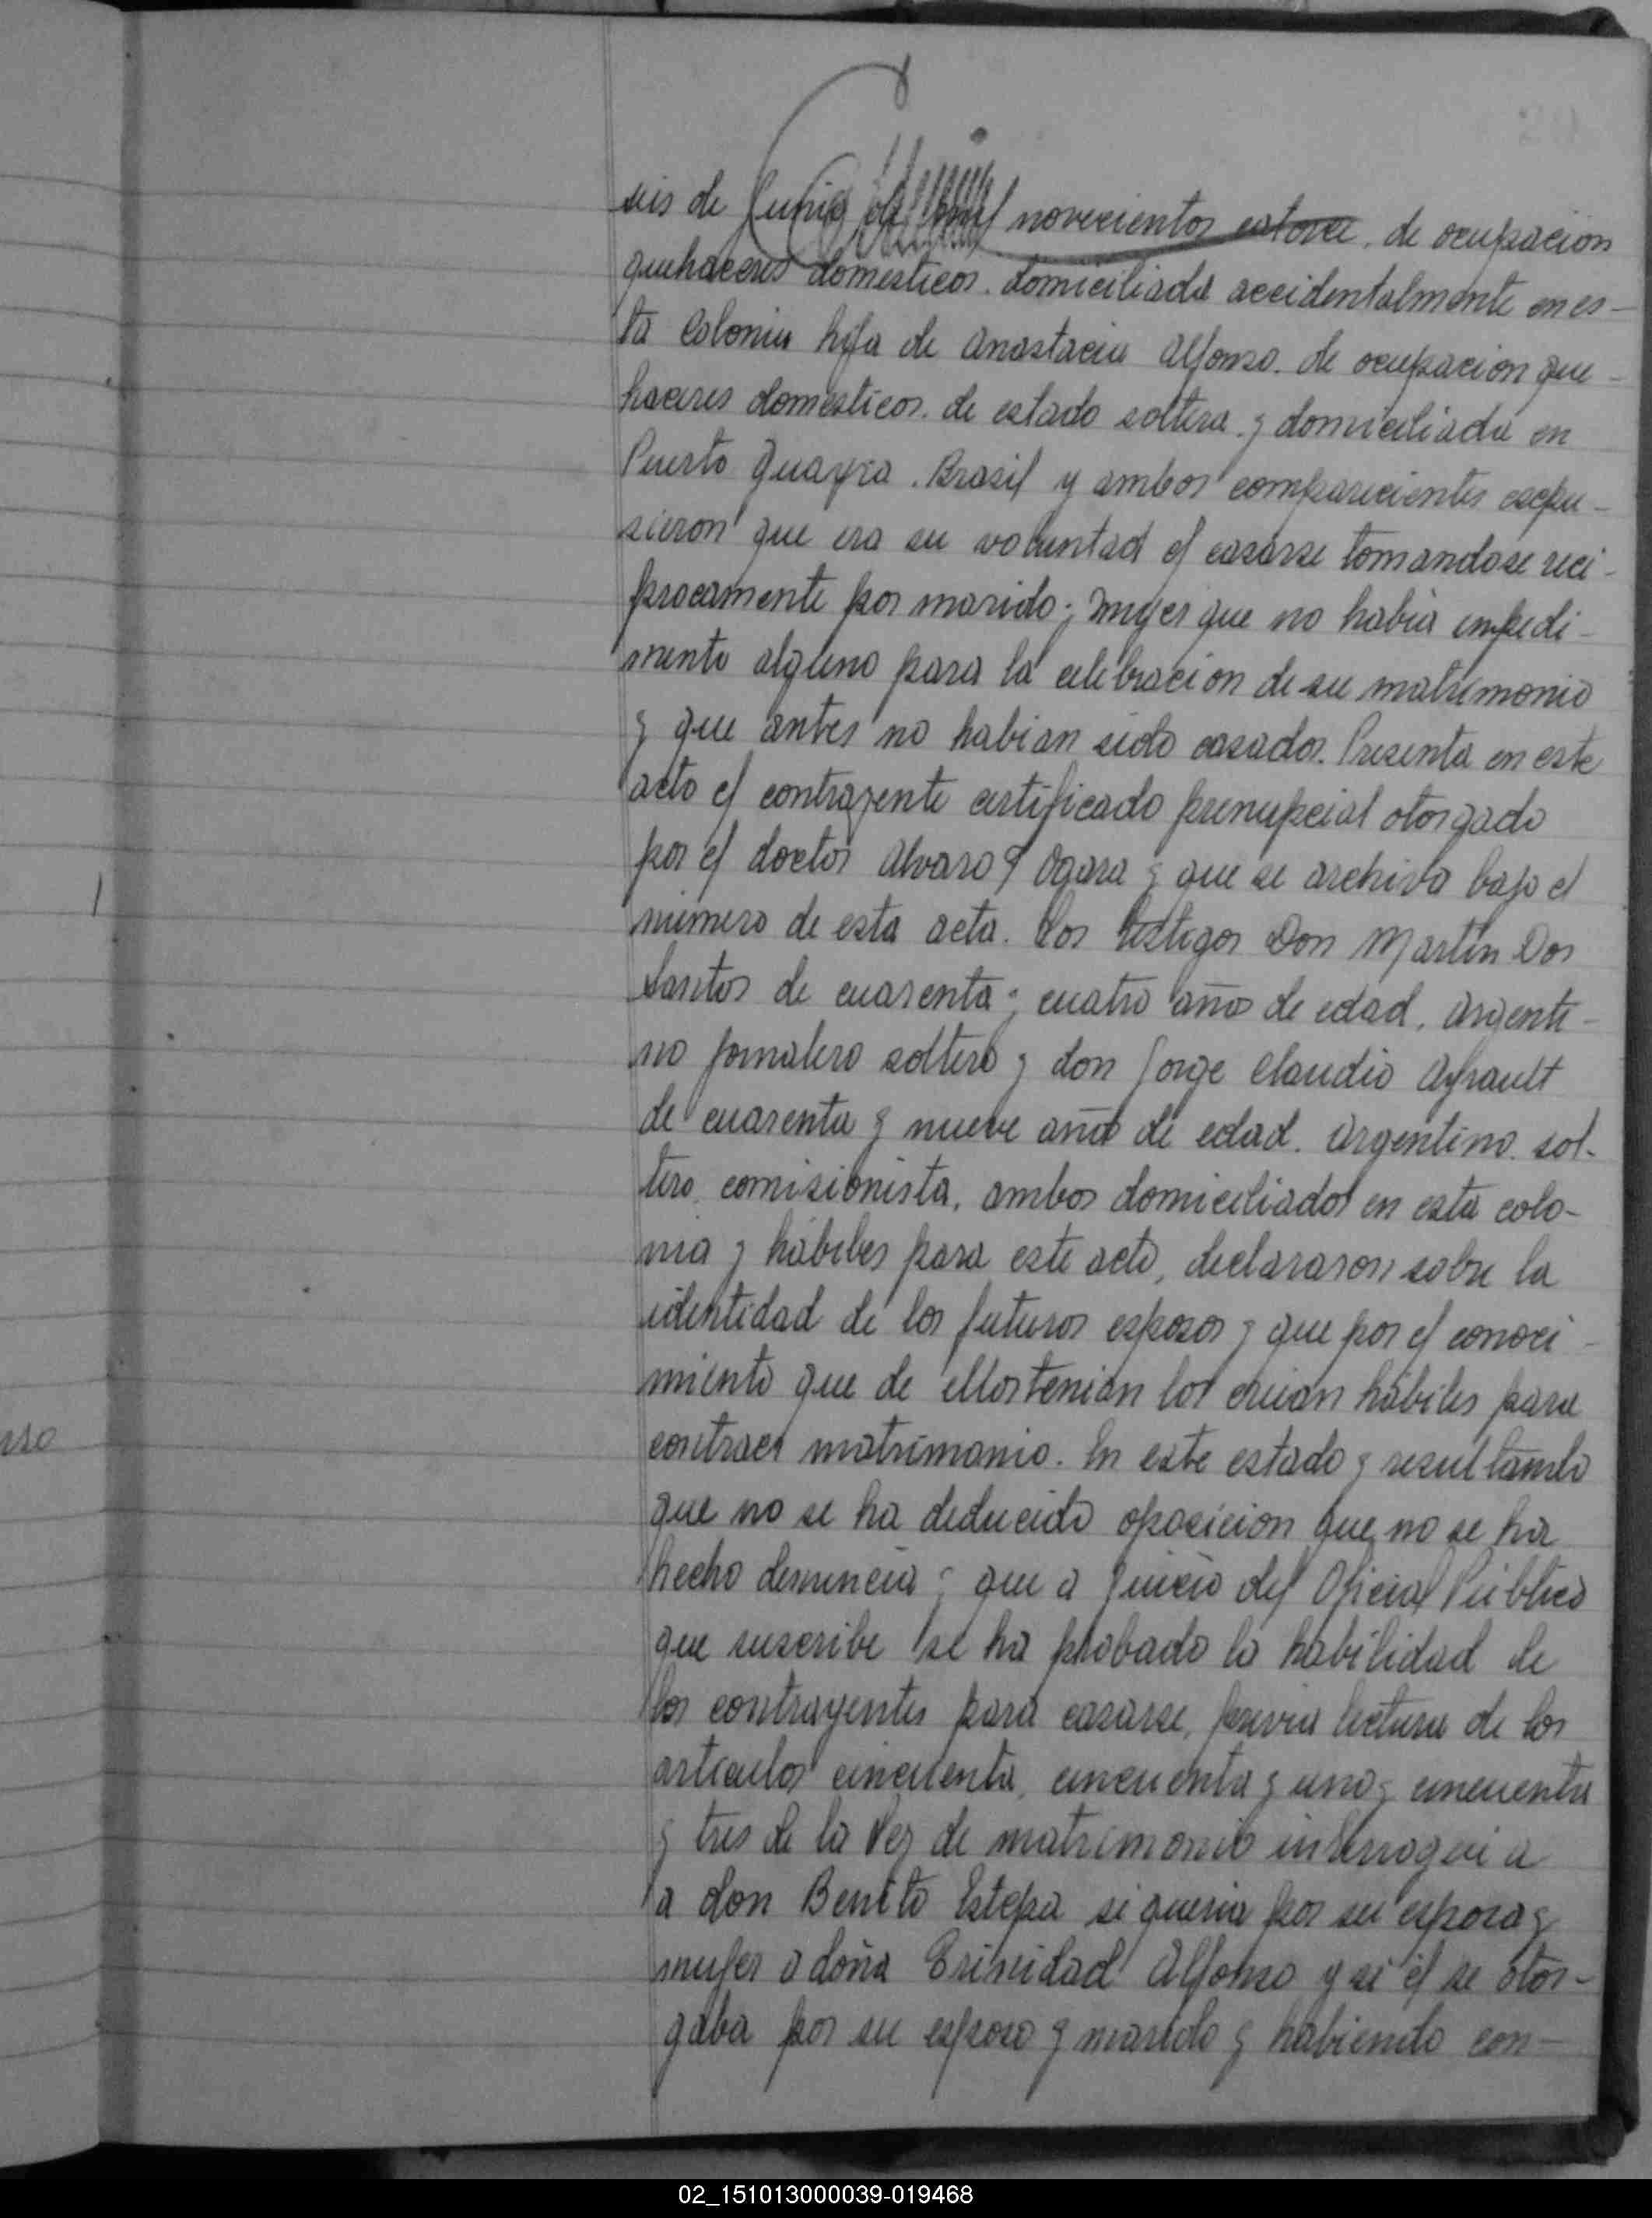 seis de Junio de mil novecientos catorce. de ocupación
quehaceres domesticos. domiciliada accidentalmente en es-
ta Colonia hija de Anastacia Alfonso. de ocupacion que-
haceres domesticos. de estado soltera y domiciliada en
Puerto Guayra. Brasil y ambos comparecientes expu-
sieron que era su voluntad el casarse tomandose reci-
procamente por marido y mujer que no habia impedi-
mento alguno para la celebracion de su matrimonio
y que antes no habian sido casados. Presenta en este
acto el contrayente certificado prenupcial otorgado
por el doctor Alvaro Ogara y que se archiva bajo el
numero de esta acta. Los testigos Don Martin Dos
Santos de cuarenta y cuatro años de edad. Argenti-
no jornalero soltero y don Jorge Claudio Ayrault
de cuarenta y nueve años de edad. Argentino. sol-
tero. comisionista. ambos domiciliados en esta colo-
nia y hábiles para este acto, declararon sobre la
identidad de los futuros esposos y que por el conoci-
miento que de ellos tenian los creian hábiles para
contraer matrimonio. En este estado y resultando
que no se ha deducido oposicion que no se ha
hecho denuncia y que a juicio del Oficial Público
que suscribe se ha probado la habilidad de
los contrayentes para casarse, previa lectura de los
articulos cincuenta, cincuenta y uno y cincuenta
y tres de la Ley de matrimonio interrogué a
a don Benito Estepa si queria por su esposa y
mujer a doña Trinidad Alfonso y si él se otor-
gaba por su esposo y marido y habiendo con-
02_151013000039-019468